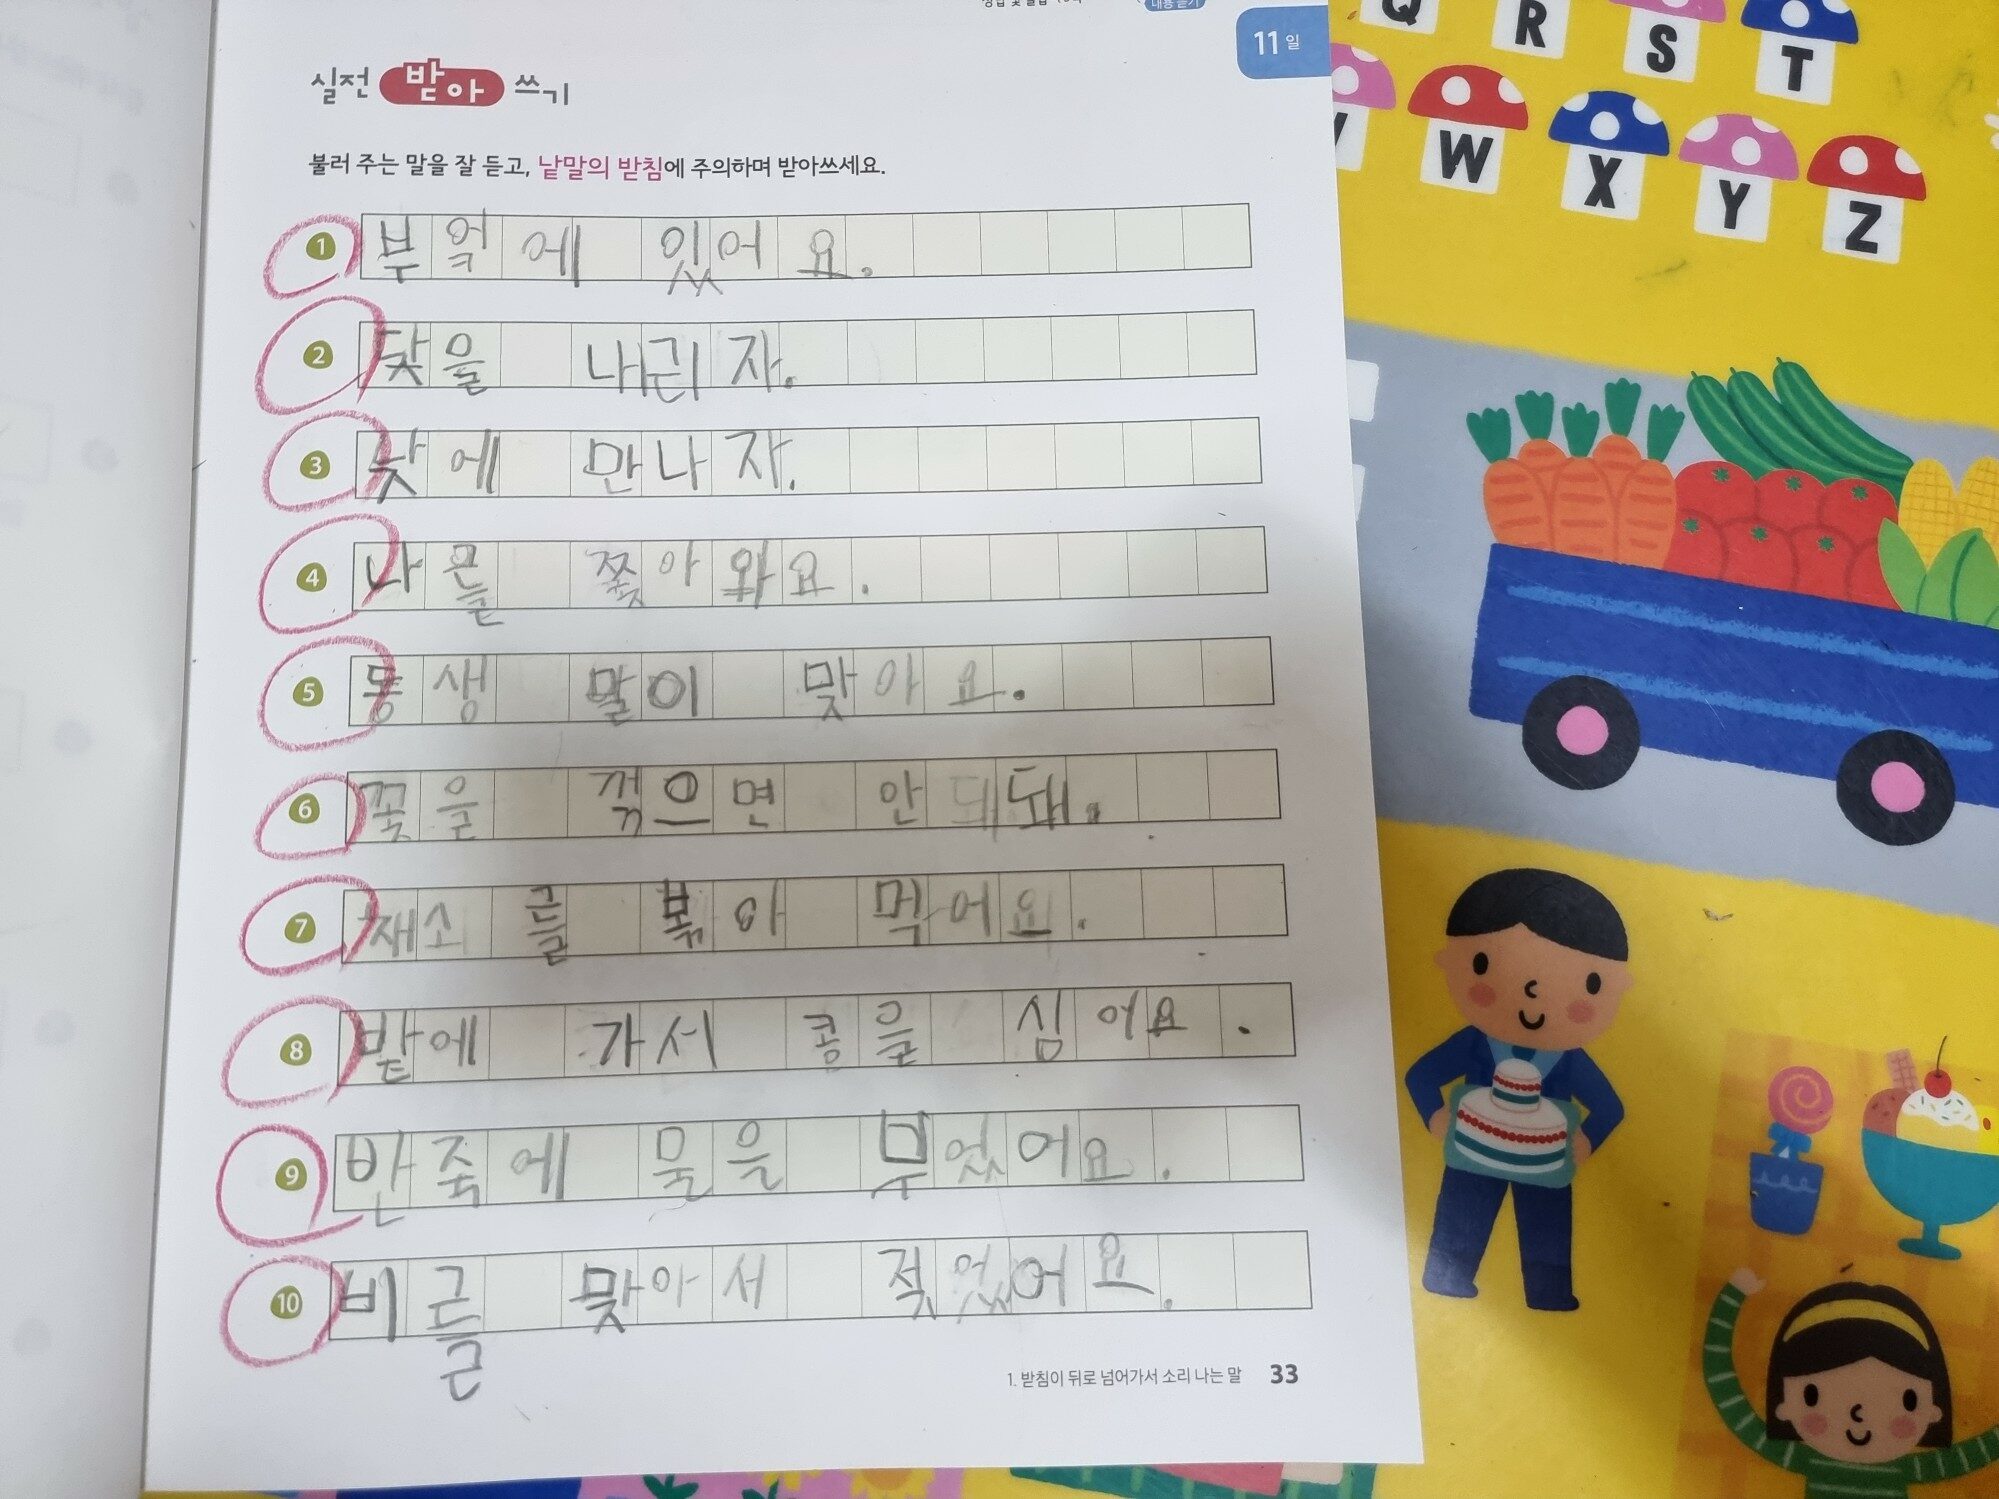 11일
실전 받아쓰기
불러 주는 말을 잘 듣고, 낱말의 받침에 주의하며 받아쓰세요.
1 부엌에 있어요.
2 닻을 내리자.
3 낮에 만나자.
4 나를 쫓아와요.
5 동생 말이 맞아요.
6 꽃을 꺾으면 안 돼.
7 채소를 볶아 먹어요.
8 밭에 가서 콩을 심어요.
9 반죽에 물을 부었어요.
10 비를 맞아서 젖었어요.
1. 받침이 뒤로 넘어가서 소리 나는 말 33
Q R S T
W X Y Z